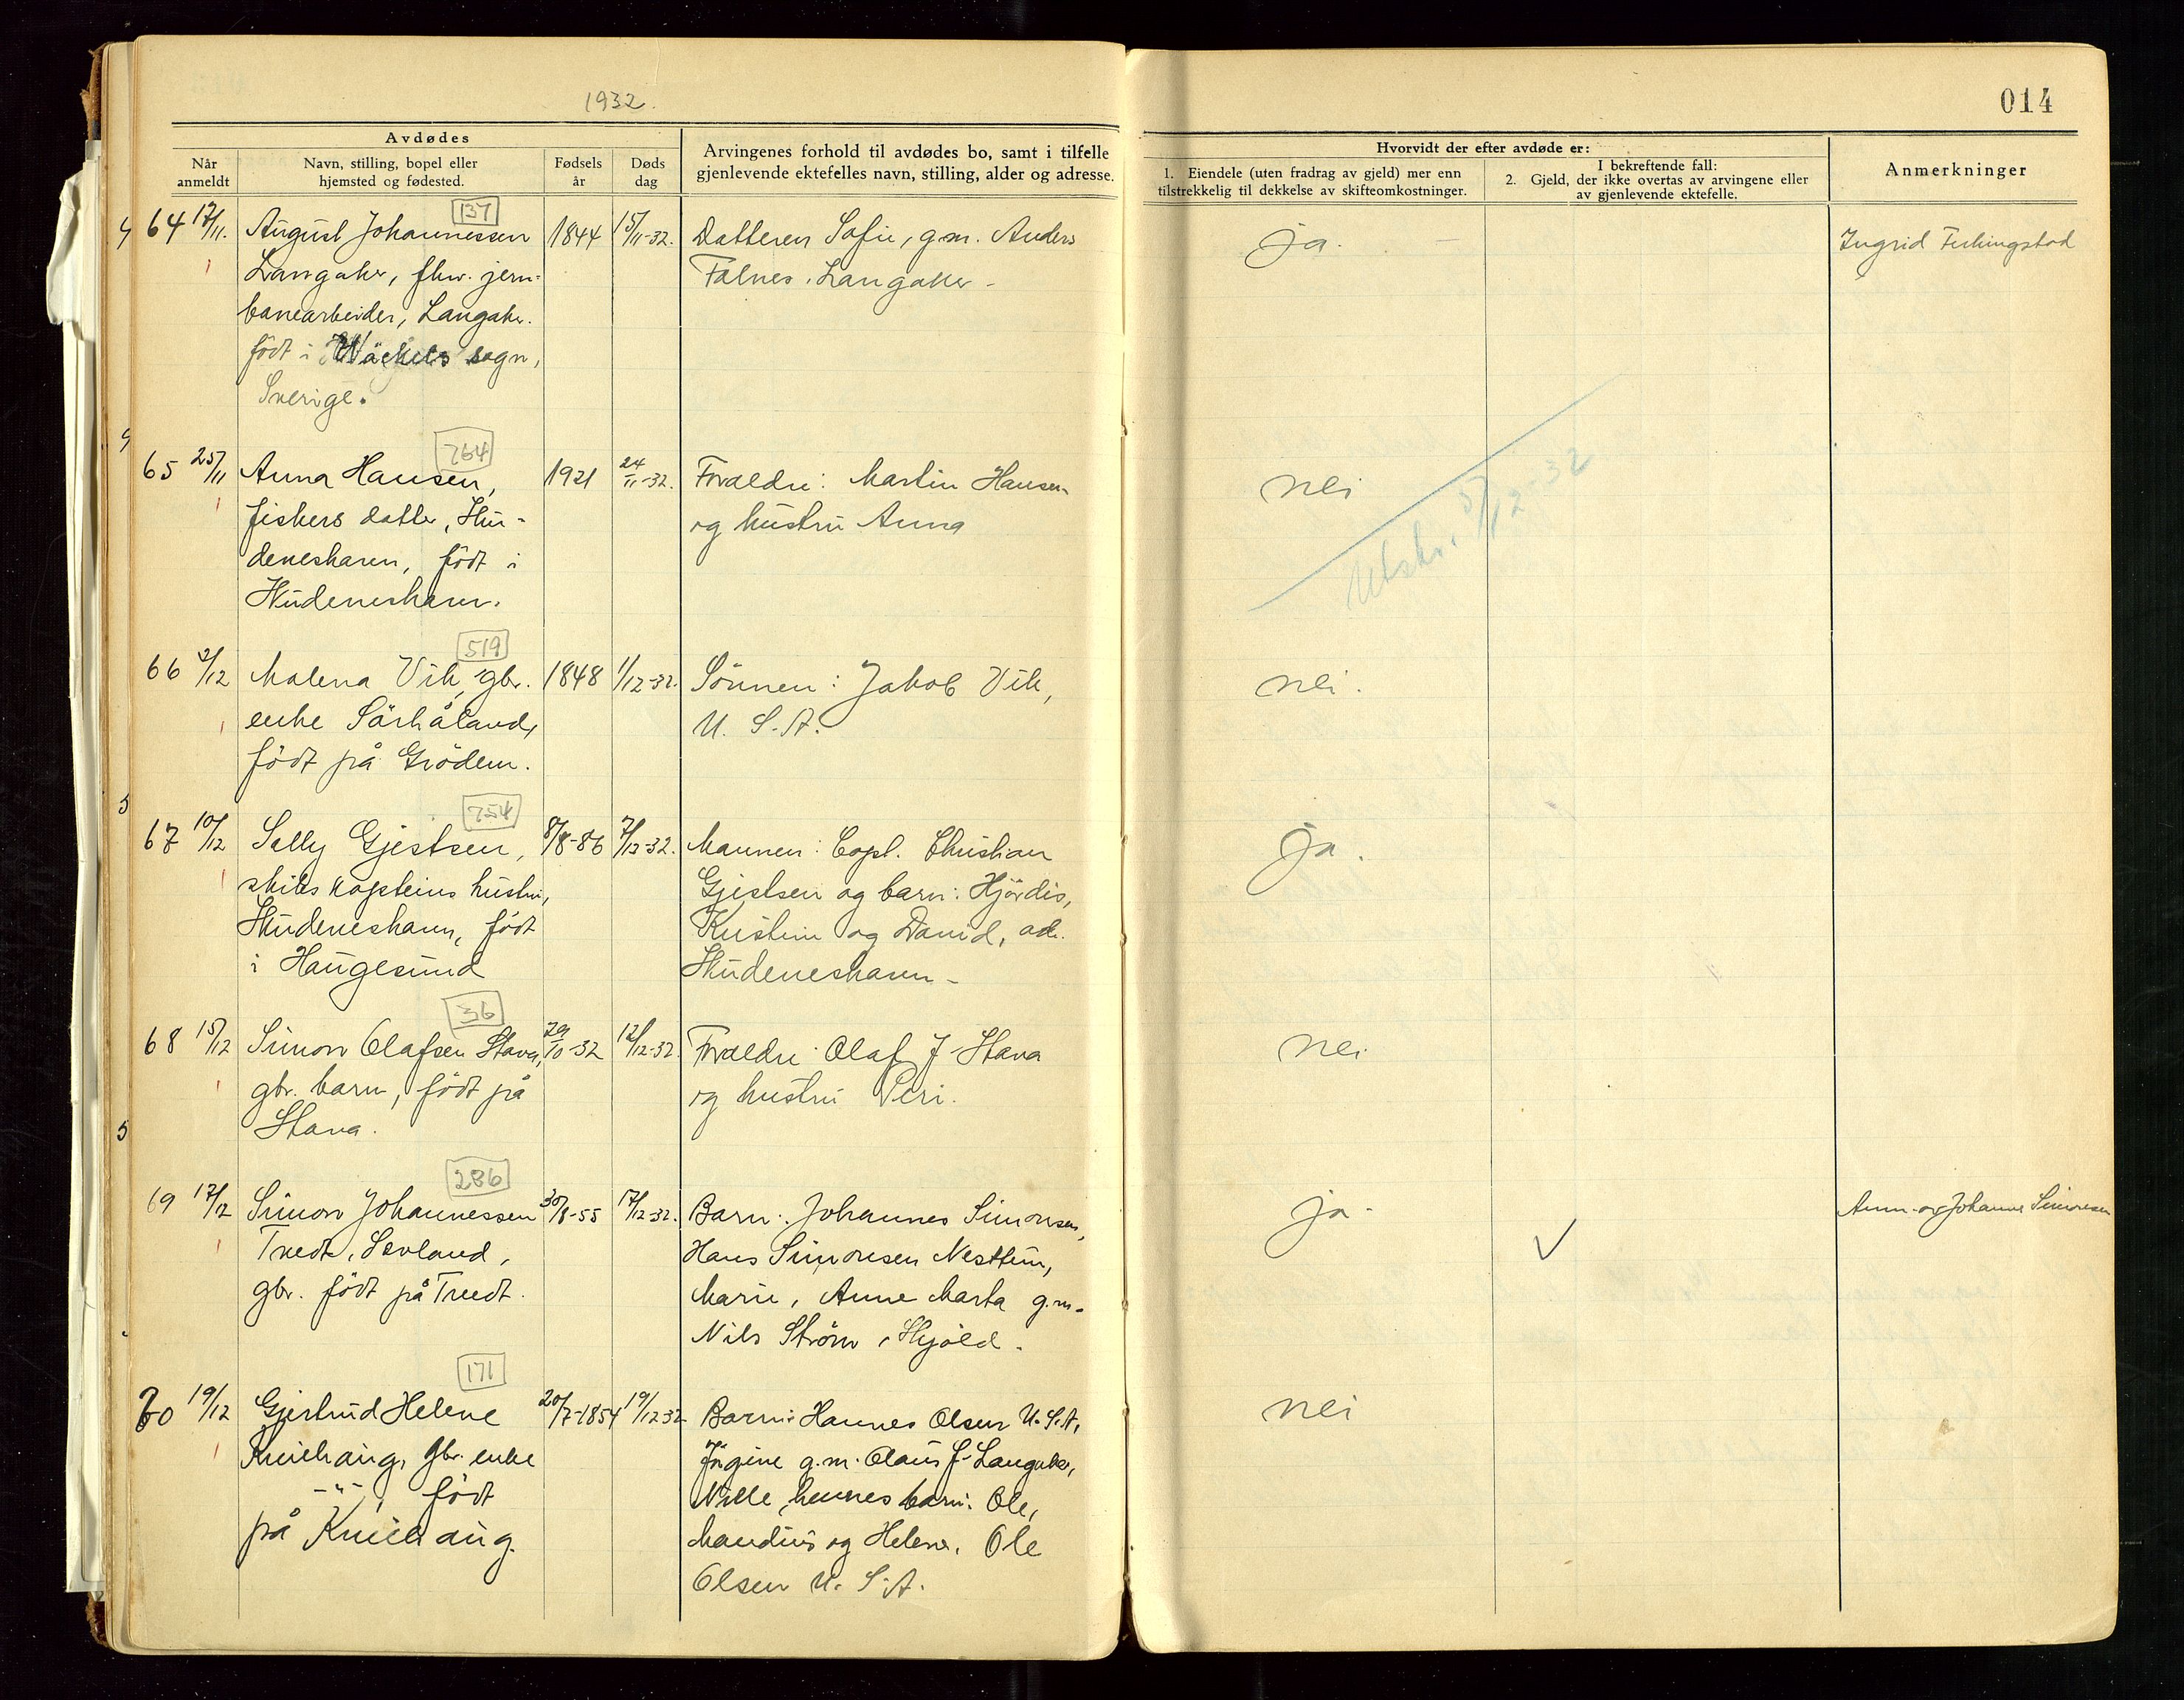 1932.
014
Avdødes
Når anmeldt
Navn, stilling, bopel eller hjemsted og fødested.
Fødsels år
Døds dag
Arvingenes forhold til avdødes bo, samt i tilfelle gjenlevende ektefelles navn, stilling, alder og adresse.
Hvorvidt der efter avdøde er:
1. Eiendele (uten fradrag av gjeld) mer enn tilstrekkelig til dekkelse av skifteomkostninger.
I bekreftende fall:
2. Gjeld, der ikke overtas av arvingene eller av gjenlevende ektefelle.
Anmerkninger
137
64 17/11. August Johannessen 1844 15/11-32. Datteren Sofie, g.m. Anders ja. Ingrid
Langaker, fhv. jern-
Falnes, Langaker -
banearbeider, Langaker.
født i sogn,
Sverige.
764
65 25/11 Anna Hansen, 1921 24/11-32. Foreldre: Martin Hansen nei
fiskers datter, Sku-
og hustru Anna
deneshavn, født i
Skudeneshavn.
Utskr. 5/12-32
519
66 2/12 Malena Vik, gbr. 1848 1/12-32. Sønnen: Jakob Vik, nei.
enke Sørhåland,
U. S. A.
født på Grødem.
754
67 10/12 Sally Gjestsen, 8/8-86 7/12-32. Mannen: Capt. Christian ja.
skibskapteins hustru,
Gjestsen og barn: Hjørdis,
Skudeneshavn, født
Kristine og David, adr.
i Haugesund
Skudeneshavn -
36
68 15/12 Simon Olafsen Stava, 29/10-32 12/12-32. Foreldre Olaf J Stava nei
gbr. barn, født på
og hustru Peri.
Stava.
286
69 17/12 Simon Johannessen 30/8-55 17/12-32. Barn: Johannes Simonsen, ja - Ann. av Johanne Simonsen
Tvedt, Sevland,
Hans Simonsen Nesttun,
gbr. født på Tvedt.
Marie, Anne Marta g.m.
Nils Strøm, Skjold.
171
70 19/12 Gjertrud Helene 20/7-1854 19/12 32 Barn: Hannes Olsen U.S.A, nei
Kneihaug, gbr. enke
Jørgine g.m. Olaus J. Langaker,
-"-, født
Nille, hennes barn: Ole,
på Kneihaug.
Mandius og Helene, Ole
Olsen U. S. A.